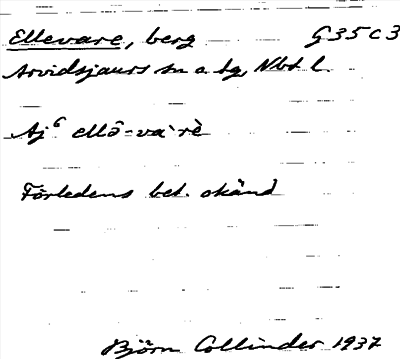 Ellevare, berg G 35 c 3
Arvidsjaurs sn o. tg, Nbt l.
Aj⁶ ellȏ-va`rè
Förledens bet. okänd
Björn Collinder 1937